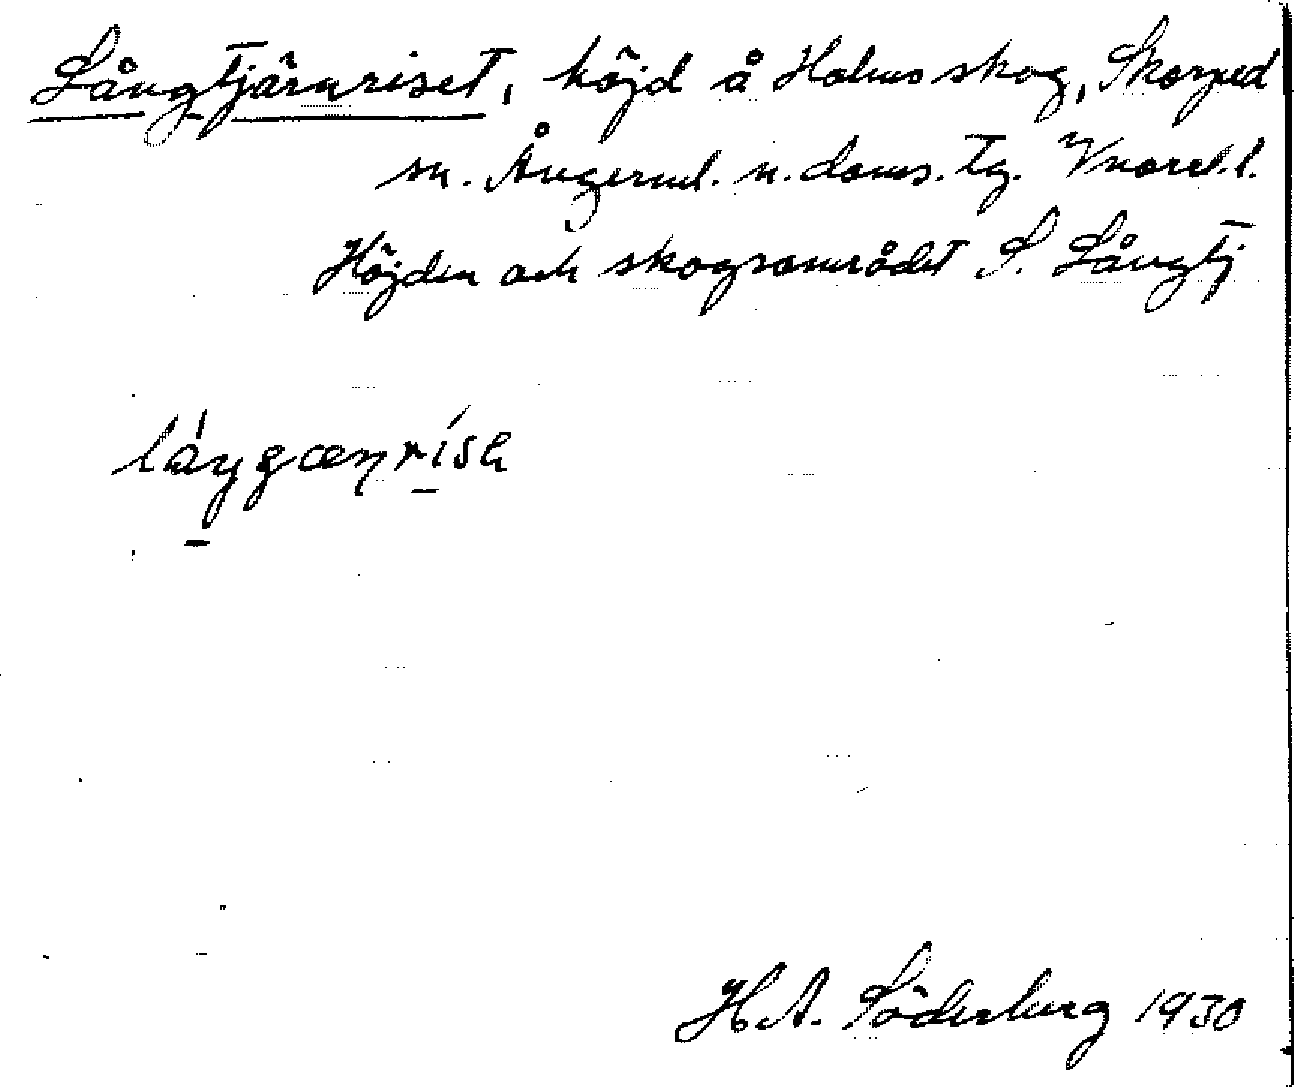 Långtjärnriset, höjd å Holms skog, Skorped
sn. Ångerml. n. doms. tg. Vnorrl. l.
Höjden och skogsområdet S. Långtj
H. A. Söderberg 1930